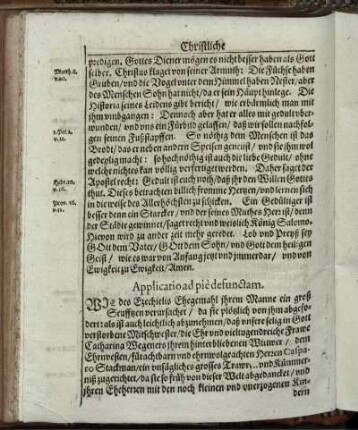 Christliche
predigen. Gottes Diener mögen es nicht besser haben als Gott
selber. Christus klaget von seiner Armuth: Die Füchse haben
Matth. 8.
v. 20.
Gruben/ und die Vogel unter dem Himmel haben Nester/ aber
des Menschen Sohn hat nicht/ da er sein Häupt hinlege. Die
Historia seines Leidens gibt bericht/ wie erbärmlich man mit
ihm umbgangen: Dennoch aber hat er alles mit gedult verbe-
wunden/ und uns ein Fürbild gelassen/ daß wir sollen nachfol-
1. Pet. 2.
v. 21.
gen seinen Fußstapffen. So nöthig dem Menschen ist das
Brodt/ das er neben andern Speisen geneust/ und sie ihm wol
gedeylig macht: so hochnöthig ist auch die liebe Gedult/ ohne
welche nichtes kan völlig verfertiget werden. Daher saget der
Apostel recht: Gedult ist euch noth/ daß jhr den Willen Gottes
Hebr. 10.
v. 36.
thut. Dieses betrachten billich fromme Hertzen/ und lernen sich
in die weise des Allerhöchsten zu schicken. Ein Gedültiger ist
Prov. 16.
besser denn ein Starcker/ und der seines Muthes Herr ist/ denn
der Städte gewinnet/ saget recht und weislich König Salomo.
Hievon wird zu ander zeit mehr geredet. Lob und Preyß sey
GOtt dem Vater/ GOtt dem Sohn/ und Gott dem heiligen
Geist/ wie es war von Anfang jetzt und jmmerdar/ und von
Ewigkeit zu Ewigkeit/ Amen.
Applicatio ad piè defunctam.
WJe des Ezechielis Ehegemahl ihrem Manne ein groß
Seufftzen verursachet/ da sie plötzlich von ihm abgefo-
dert: als ist auch leichtlich abzunehmen/ daß unsere selig in Gott
verstorbene Mitschwester/ die Ehr und vieltugendreiche Frawe
Catharina Wegeners ihrem hinterbliebenen Wittwer/ dem
Ehrnvesten/ fürachtbarn und ehrnwolgeachten Herren Caspa-
ro Stackman/ ein unsägliches grosses und Kümmer-
niß zugerichtet/ da sie so früh von dieser Welt abgedancket/ und
ihren Eheherren mit den noch kleinen und unerzogenen Kin-
dern